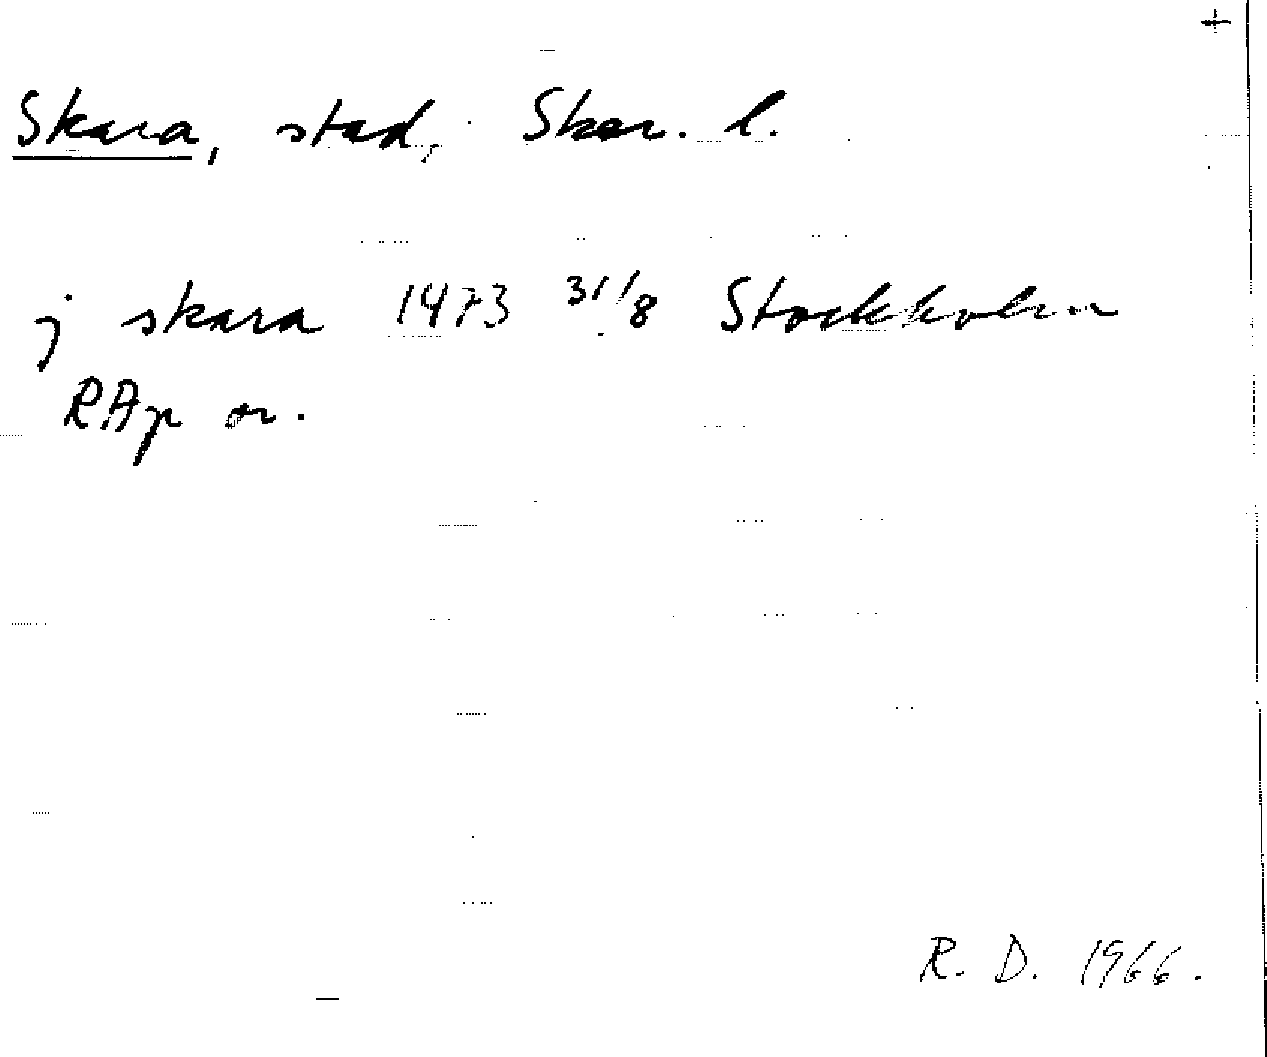 Skara, stad, Skar. l.
j skara 1473 31/8 Stockholm
RAp or.
R. D. 1966.